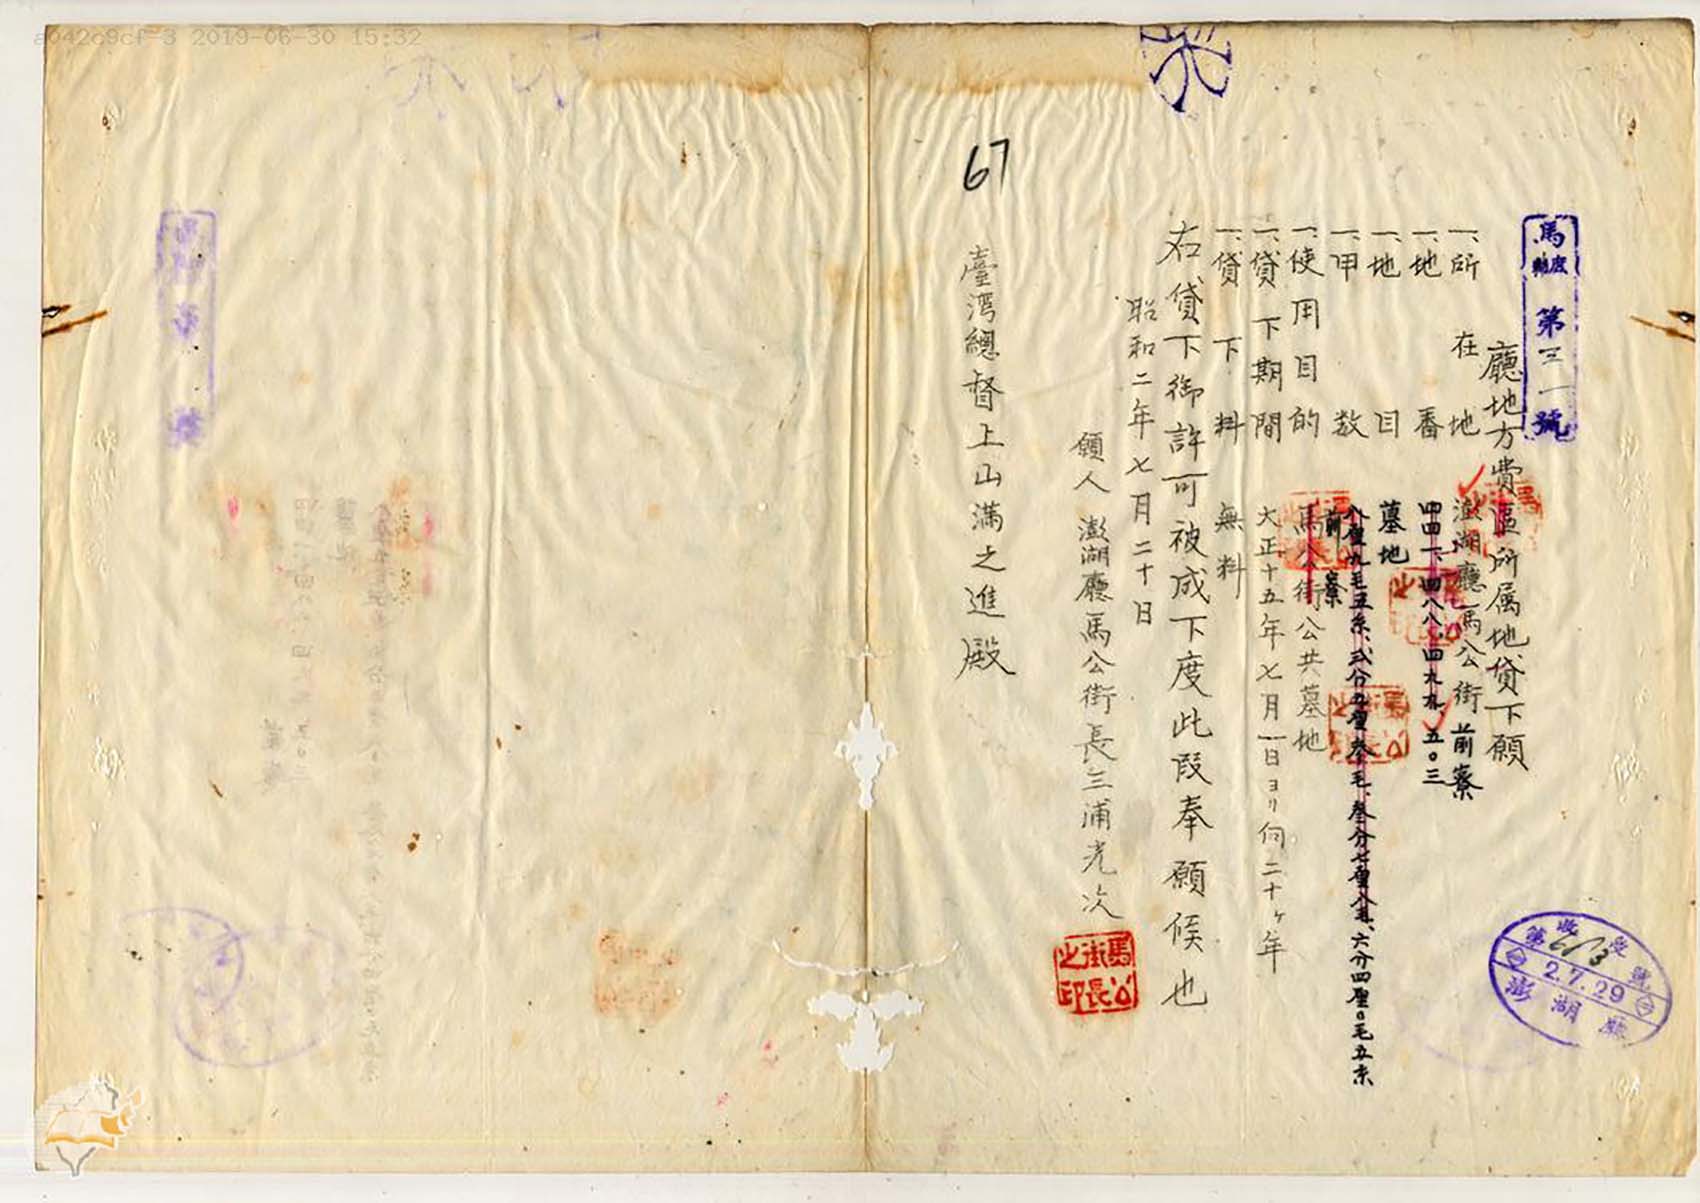 a642c9cf-3 2019-06-30 15:32
67
馬庶勧 第三一號
廳地方費區所属地貸下願
一、所在地 澎湖廳馬公街前寮
一、地番 四四一、四八八、四九九、五〇三
一、地目 墓地
一、甲数 八厘九毛五糸、弐分五厘参毛、参分七厘八毛、六分四厘〇毛五糸
前寮
一、使用目的 馬公街公共墓地
一、貸下期間 大正十五年七月一日ヨリ向二十ヶ年
一、貸下料 無料
右貸下御許可被成下度此段奉願候也
昭和二年七月二十日
願人 澎湖廳馬公街長三浦光次
馬公街長之印
臺湾總督上山満之進殿
收受
第6173號
2.7.29
澎湖廳